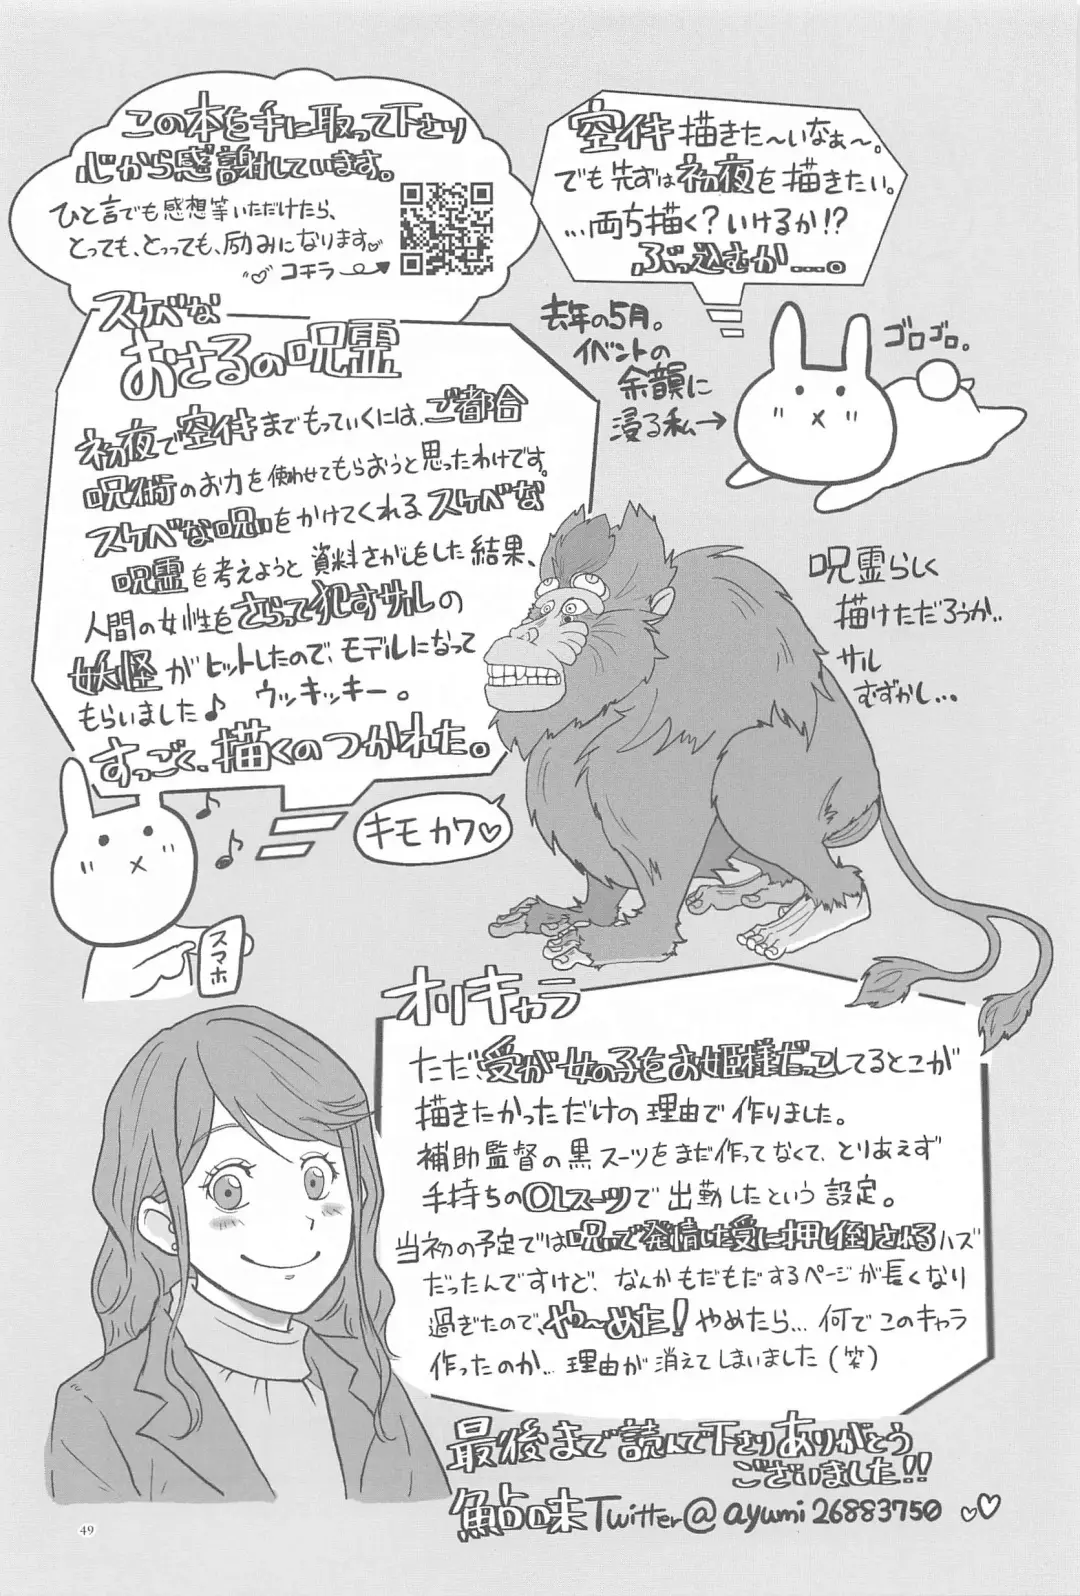 この本を手に取って下さり
心から感謝しています。
ひと言でも感想等いただけたら、
とっても、とっっても、励みになります♡
コチラ
空イキ描きた〜いなぁ〜。
でも先ずは初夜を描きたい。
…両ち描く?いけるか!?
ぶっ込むか……。
去年の5月。
イベントの
余韻に
浸る私→
ゴロゴロ。
スケベな
おさるの呪霊
初夜で空イキまでもっていくには、ご都合
呪術のお力を使わせてもらおうと思ったわけです。
スケベな呪いをかけてくれるスケベな
呪霊を考えようと資料さがしをした結果、
人間の女性をさらって犯すサルの
妖怪がヒットしたので、モデルになって
もらいました♪ ウッキッキー。
すっごく、描くのつかれた。
呪霊らしく
描けただろうか..
サル
むずかし...
キモカワ♡
スマホ
オリキャラ
ただ、受が女の子をお姫様だっこしてるとこが
描きたかっただけの理由で作りました。
補助監督の黒スーツをまだ作ってなくて、とりあえず
手持ちのOLスーツで出勤したという設定。
当初の予定では呪いで発情した受に押し倒されるハズ
だったんですけど、なんかもだもだするページが長くなり
過ぎたので、や〜めた!やめたら...何でこのキャラ
作ったのか...理由が消えてしまいました(笑)
最後まで読んで下さりありがとう
ございました!!
鮎味Twitter@ayumi26883750
49